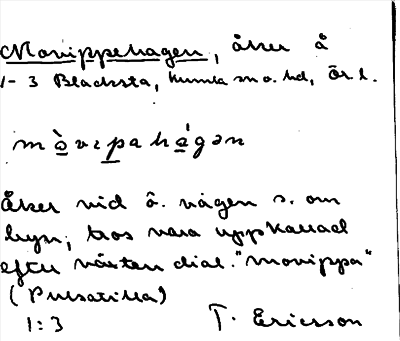 Movippehagen, åker å
1-3 Blacksta, Kumla sn o. hd, Ör. l.
mò̱vɩp̱ahá̱gən
Åker vid ö. vägen s. om
byn; tros vara uppkallad
efter växten dial. "movippa"
(Pulsatilla)
1:3 T. Ericsson